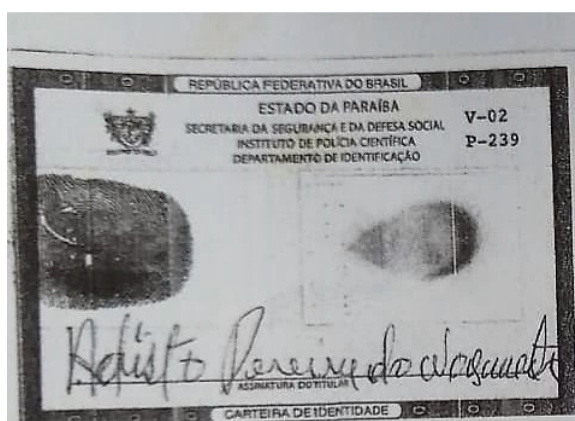 REPÚBLICA FEDERATIVA DO BRASIL
ESTADO DA PARAÍBA
SECRETARIA DA SEGURANÇA E DA DEFESA SOCIAL
INSTITUTO DE POLÍCIA CIENTÍFICA
DEPARTAMENTO DE IDENTIFICAÇÃO
V-02
P-239
Pereira do
ASSINATURA DO TITULAR
CARTEIRA DE IDENTIDADE